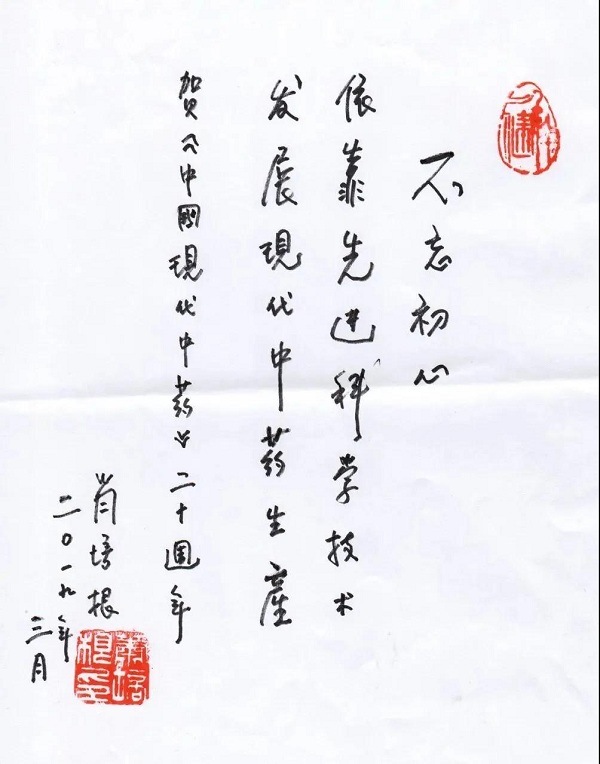 不忘初心
依靠先进科学技术
发展现代中药生產
贺《中國現代中药》二十週年
肖培根
二〇一九年
三月